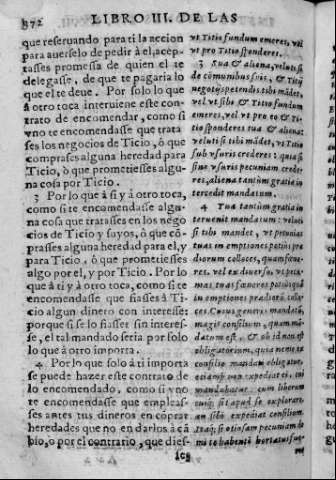 872 LIBRO III. DE LAS
que reseruando para ti la accion
para auerselo de pedir à el, acep-
tasses promessa de quien el te
delegasse, de que te pagaria lo
que el te deue. Por solo lo que
à otro toca interuiene este con-
trato de encomendar, como si
vno te encomendasse que trata
ses los negocios de Ticio, ò que
comprases alguna heredad para
Ticio, ò que prometiesses algu-
na cosa por Ticio.
3 Por lo que à ti y à otro toca,
como si te encomendasse algu-
na cosa que tratasses en los nego
cios de Ticio y suyos, ò que cõ-
prasses alguna heredad para el, y
para Ticio, ò que prometiesses
algo por el, y por Ticio. Por lo
que à ti y à otro toca, como si te
encomendasse que fiasses à Ti-
cio algun dinero con interesse:
porque si se lo fiasses sin interes-
se, el tal mandado seria por solo
lo que à otro importa.
4 Por lo que solo à ti importa
se puede hazer este contrato de
lo encomendado, como si vno
te encomendasse que empleas-
ses antes tus dineros en cõprar
heredades que no en darlos à cã
bio, o por el contrario, que dies-
ses
vt Titio fundum emeres, vel
vt pro Titio sponderes.
3 Tua & aliena, veluti si
de cõmunibus suis, & Titij
negotijs gerendis tibi mãdet,
vel vt sibi & Titio fundum
emeres, vel vt pro eo & Ti-
tio sponderes tua & aliena:
veluti si tibi mãdet, vt Titio
sub vsuris crederes: quia si
sine vsuris pecuniam crede-
res, aliena tantùm gratia in
tercedit mandatum.
4 Tua tantùm gratia in
teruenit mandatum: veluti
si tibi mandet, vt pecunias
tuas in emptiones potiùs præ
diorum colloces, quam fœne-
res. vel ex diuerso, vt pecu-
nias tuas fœneres potiùs quã
in emptiones prædiorũ collo-
ces. Cuius generis mandatũ,
magis consilium, quam mã-
datum est, & ob id non est
obligatorium, quia nemo ex
consilio mandati obligatur,
etiamsi non expediat ei, cui
mandabatur: cum liberum
cuiq; sit apud se explorare,
an sibi expediat consilium.
Itaq; si otiosam pecuniam do
mi te habentẽ hortatus fue-